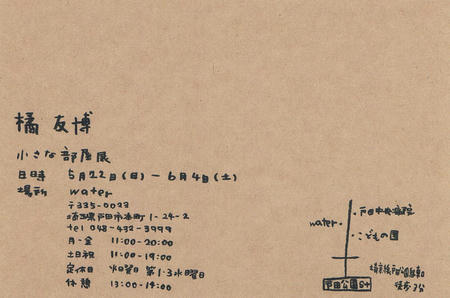 橘 友博
小さな部屋展
日時 5月22日(日) － 6月4日(土)
場所 water
〒335-0023
埼玉県戸田市本町 1-24-2
tel 048-432-3999
月-金 11:00-20:00
土日祝 11:00-19:00
定休日 火曜日 第1·3水曜日
休憩 13:00-14:00
・戸田中央病院
water・
・こどもの国
戸田公園St
埼京線戸田公園駅
徒歩7分